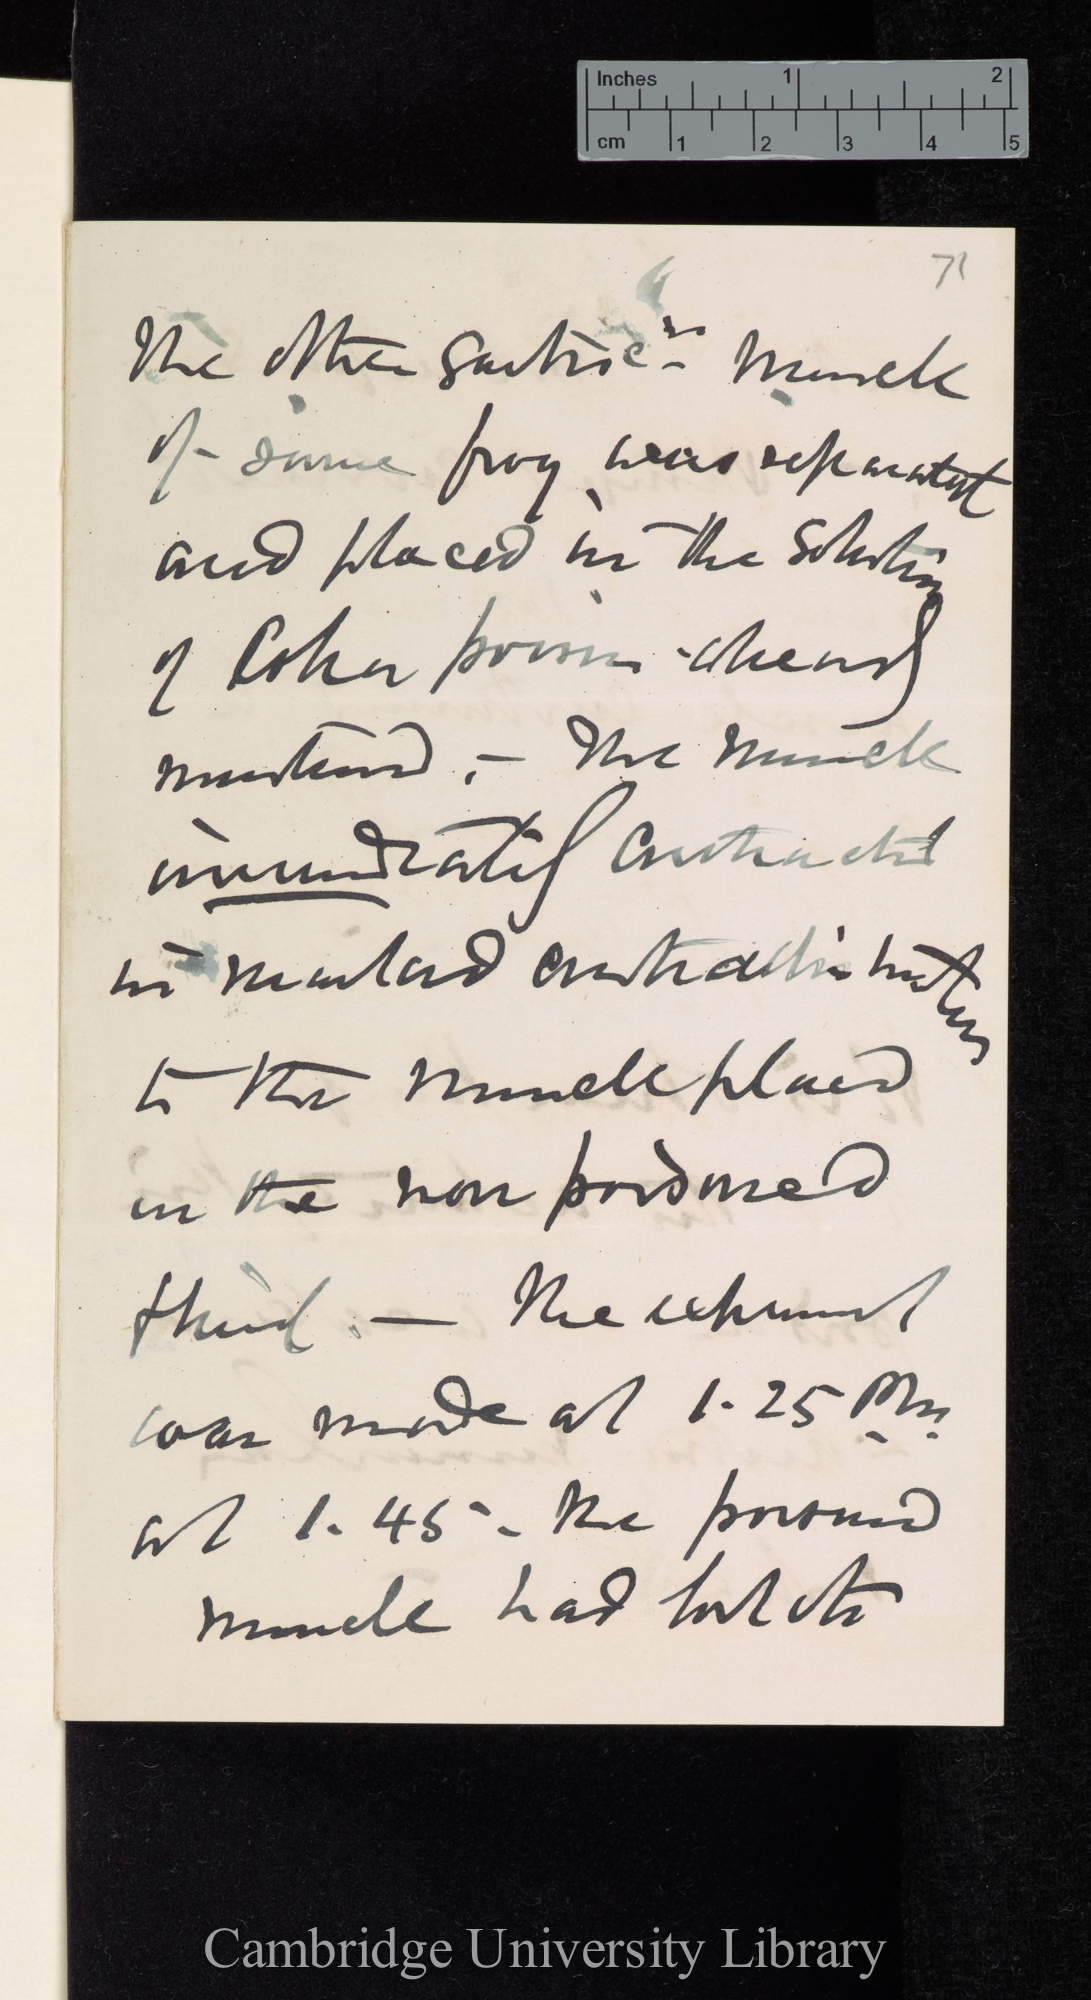 Inches 1 2
cm 1 2 3 4 5
71
The other Gastroc.ns Muscle
of same frog was separated
and placed in the Solution
of Cobra poison already
mentioned. – The Muscle
immediately Contracted
in marked contradistinction
to the muscle placed
in the non poisoned
fluid. — The experiment
was made at 1.25 PM.
at 1.45 – the poisoned
muscle had lost its
Cambridge University Library